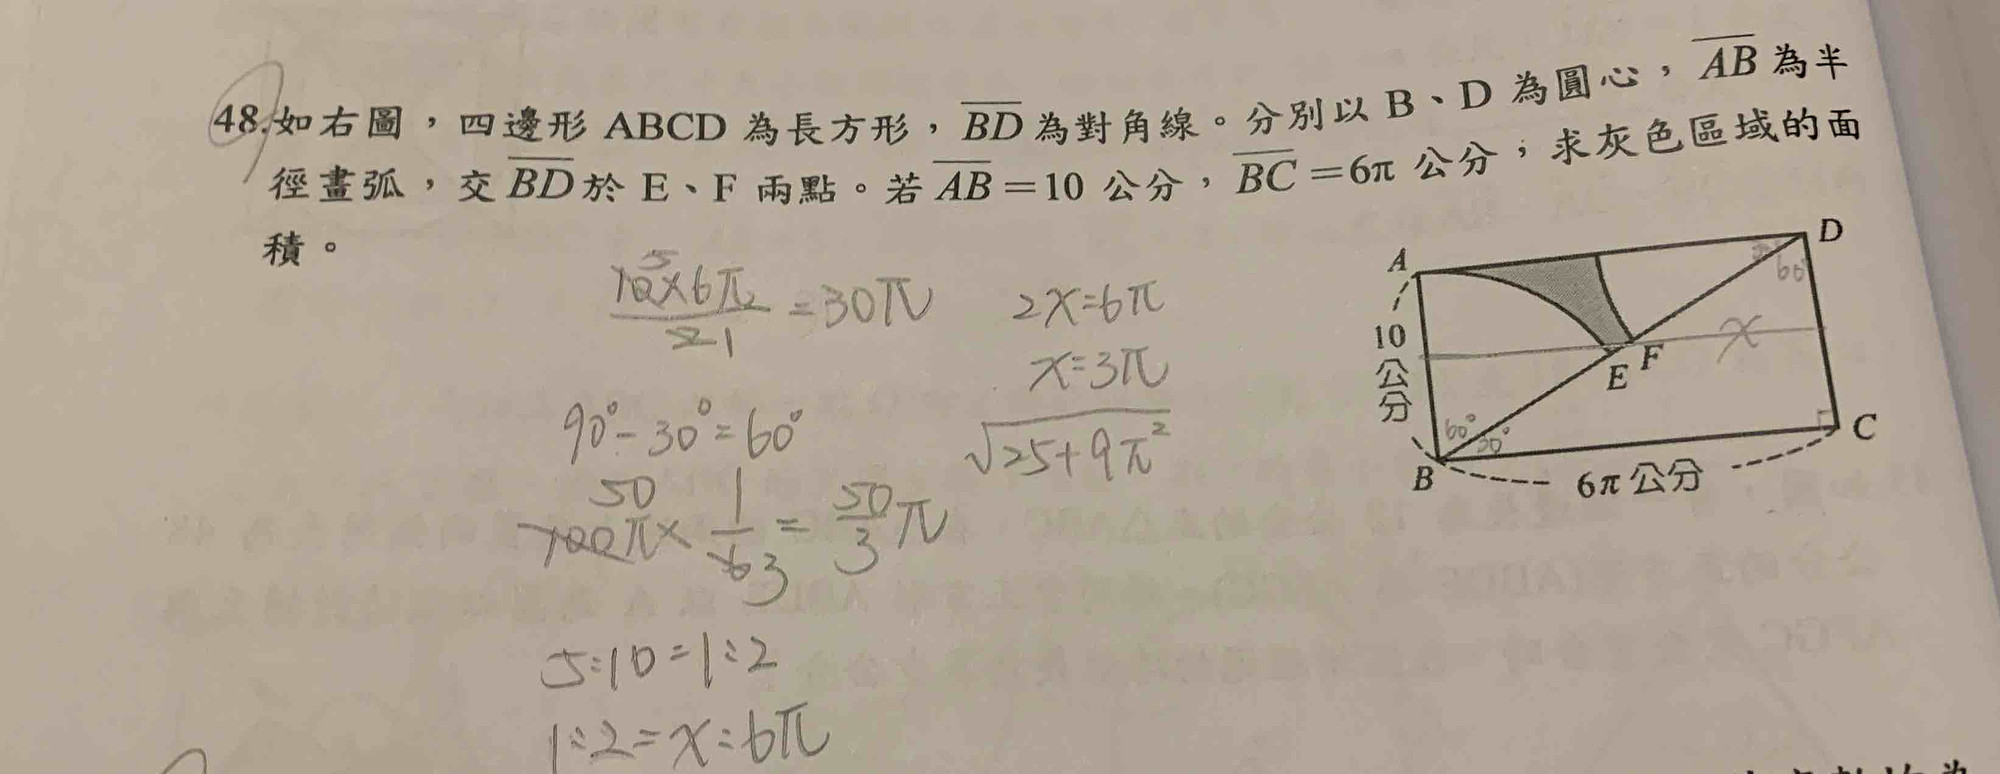 48.如右圖，四邊形 ABCD 為長方形，BD 為對角線。分別以 B、D 為圓心，AB 為半
徑畫弧，交 BD 於 E、F 兩點。若 AB＝10 公分，BC＝6π 公分，求灰色區域的面
積。
10×6π/2 = 30π
5
1
2x=6π
x=3π
√25+9π²
90°-30°=60°
100π×1/6=50/3π
50
3
5:10=1:2
1:2=x:6π
A
D
60°
10
公
分
x
E
F
60°
30°
B
C
6π 公分